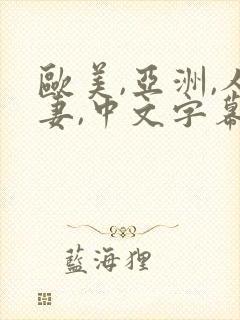 歐美,亞洲,人
妻,中文字幕
藍海狸